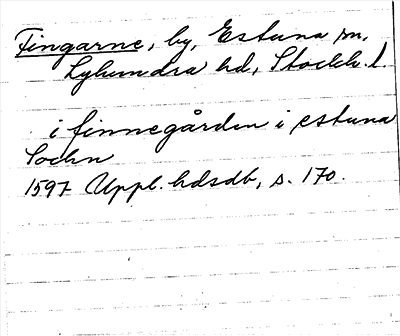 Fingarne, by, Estuna sn,
Lyhundra hd, Stockh. l.
i finnegården i estuna
Sochn
1597 Uppl. hdsdb, s. 170.